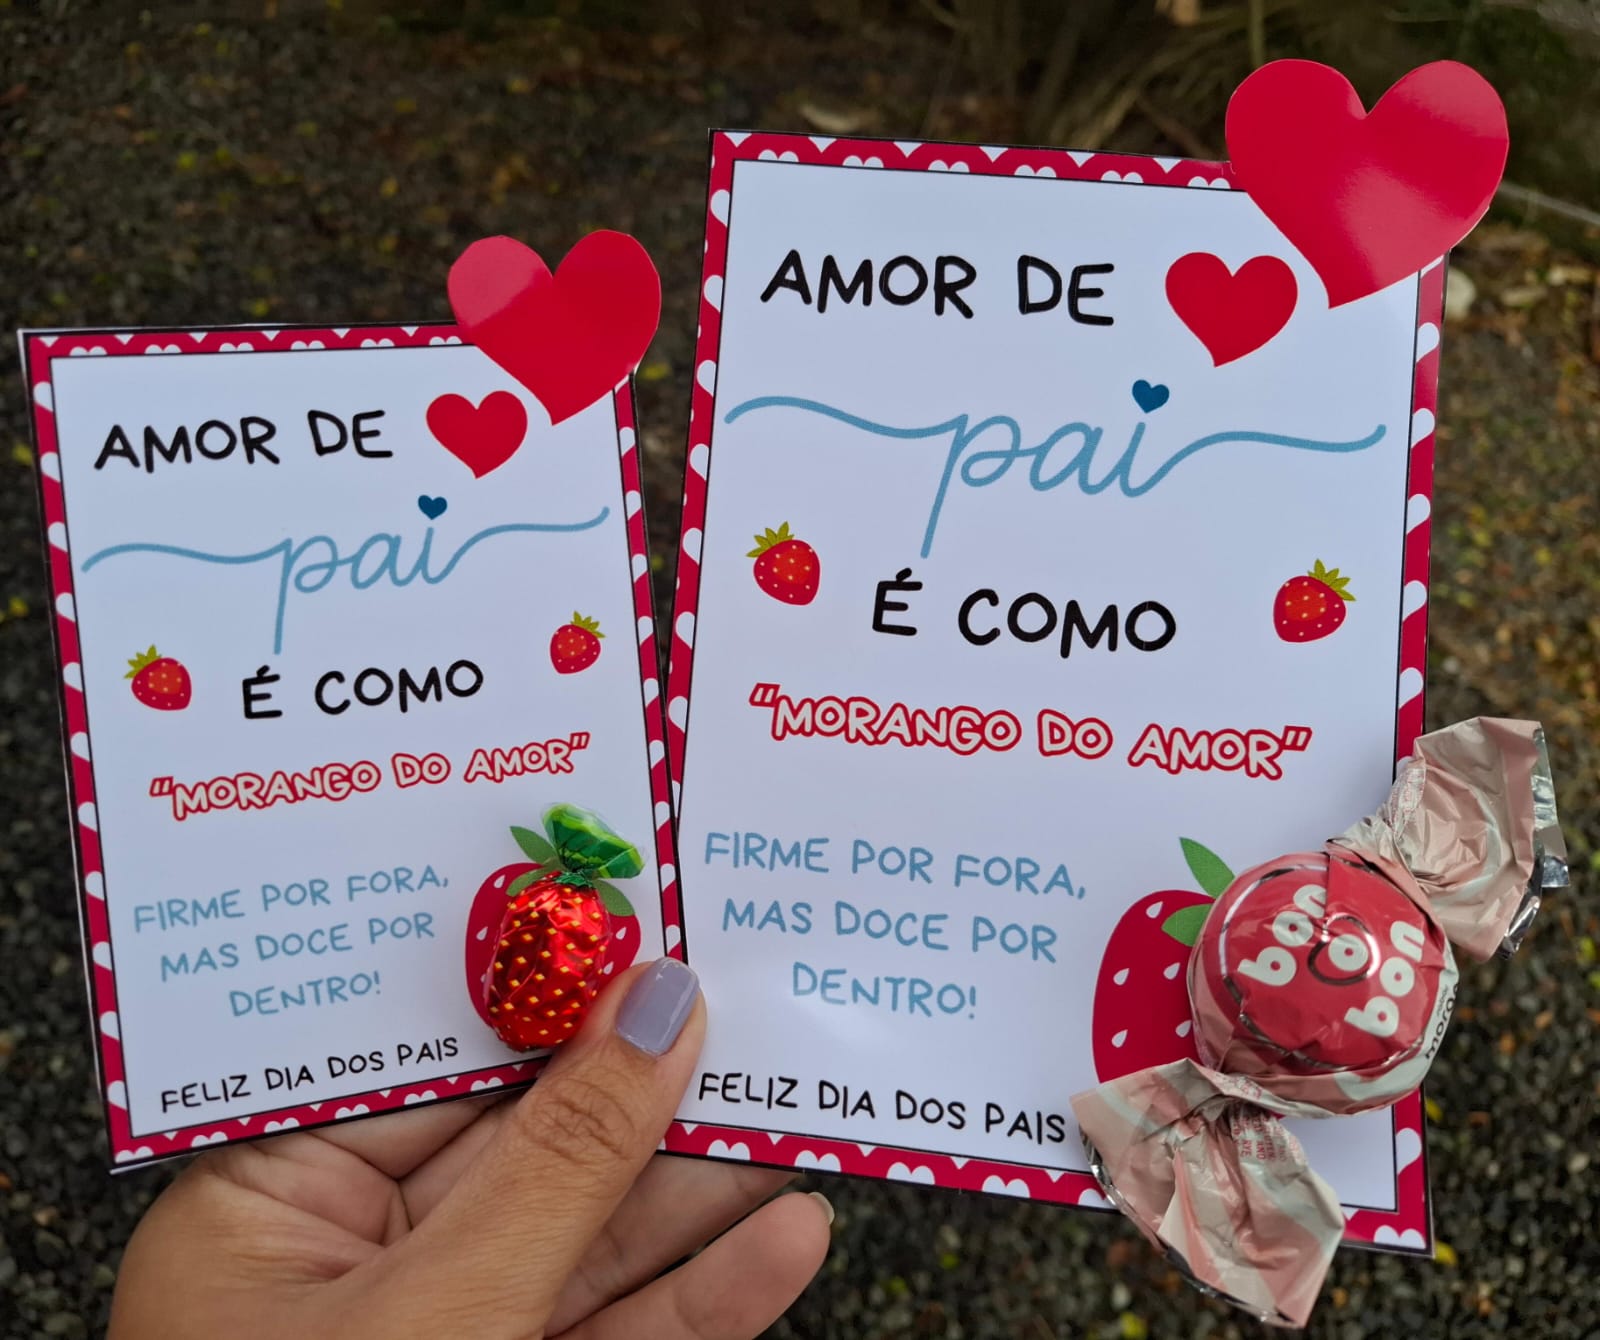 AMOR DE
pai
É COMO
"MORANGO DO AMOR"
FIRME POR FORA,
MAS DOCE POR
DENTRO!
FELIZ DIA DOS PAIS
AMOR DE
pai
É COMO
"MORANGO DO AMOR"
FIRME POR FORA,
MAS DOCE POR
DENTRO!
FELIZ DIA DOS PAIS
bon
o
bon